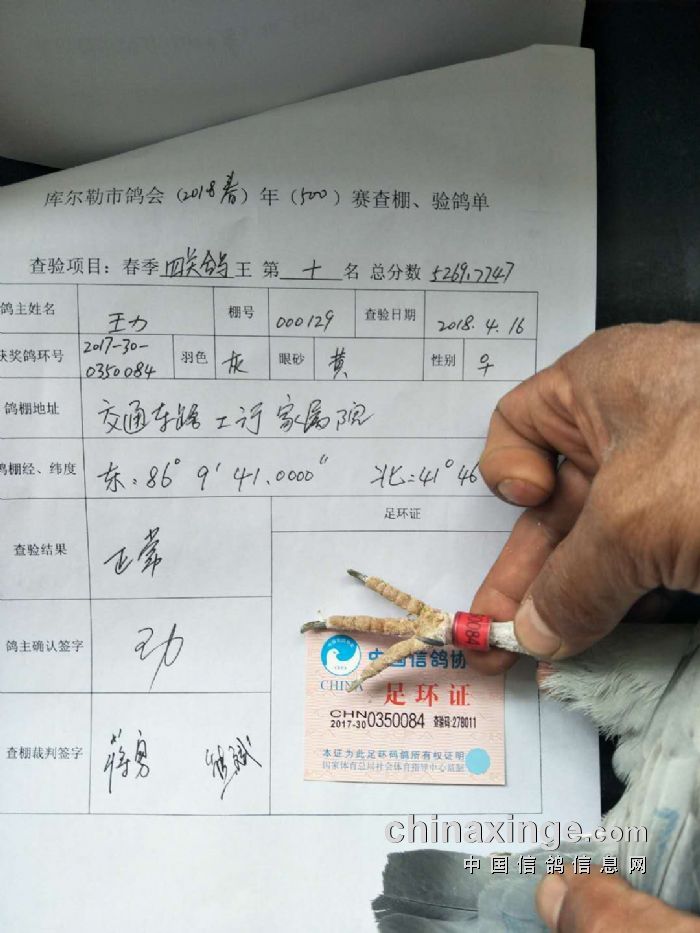 库尔勒市鸽会（2018春）年（500）赛查棚、验鸽单
查验项目：春季四关鸽王 第 十 名 总分数 5269.7747
鸽主姓名 王力 棚号 000129 查验日期 2018.4.16
获奖鸽环号 2017-30-0350084 羽色 灰 眼砂 黄 性别 ♀
鸽棚地址 交通东路工行家属院
鸽棚经、纬度 东:86°9'41.0000" 北:41°46
查验结果 正常
足环证
鸽主确认签字 王力
查棚裁判签字 蒋勇
0084
中国信鸽协
CHINA
足环证
CHN
2017-30 0350084 查验码:278011
本证为此足环码鸽所有权证明
国家体育总局社会体育指导中心监制
chinaxinge.com
中国信鸽信息网